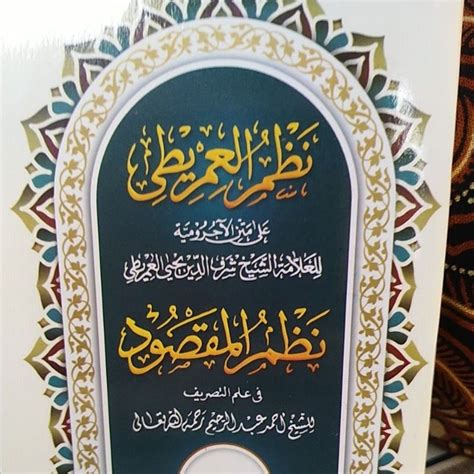 نظم العمريطي
على متن الآجرومية
للعلامة الشيخ شرف الدين يحيى العمريطي
نظم المقصود
في علم التصريف
للشيخ احمد عبد الرحيم رحمه الله تعالى